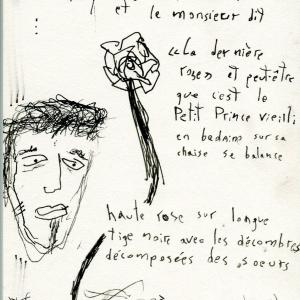 et le monsieur dit
«La dernière
rose» et peut-être
que c'est le
Petit Prince vieilli
en bedaine sur sa
chaise se balance
haute rose sur longue
tige noire avec les décombres
décomposées des soeurs